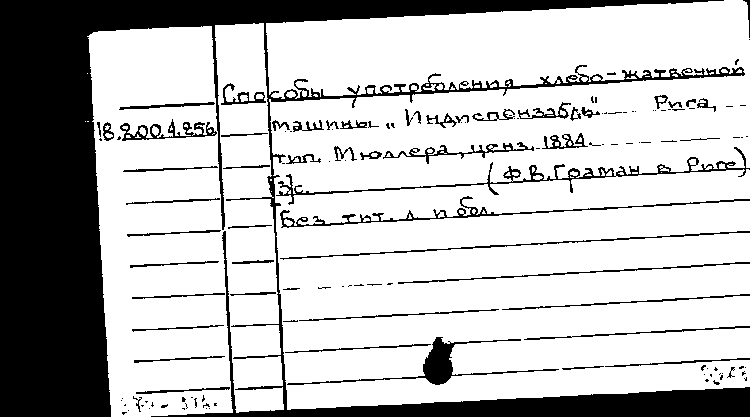 Способы употребления хлебо-жатвенной
18.200.4.256 машины „Индиспонзабль“. Рига,
тип. Мюллера, ценз. 1884.
[3]с. (Ф.В.Граман в Риге)
Без тит. л и обл.